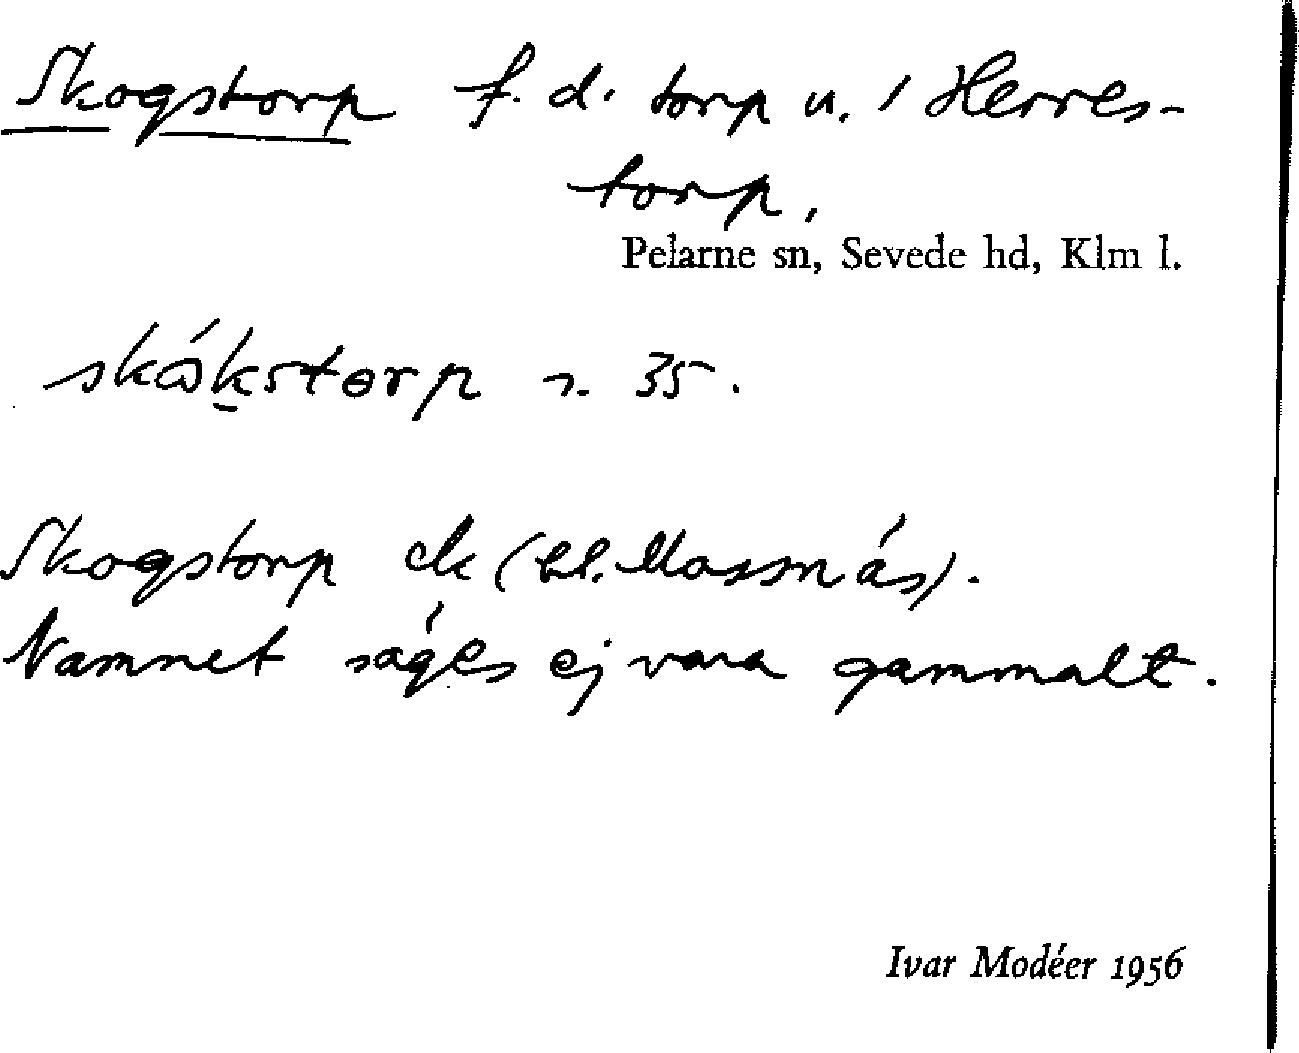 Skogstorp f. d. torp u. / Herres-
torp,
Pelarne sn, Sevede hd, Klm l.
skákstorp s. 35.
Skogstorp ek (bl. Mossmås).
Namnet säges ej vara gammalt.
Ivar Modéer 1956